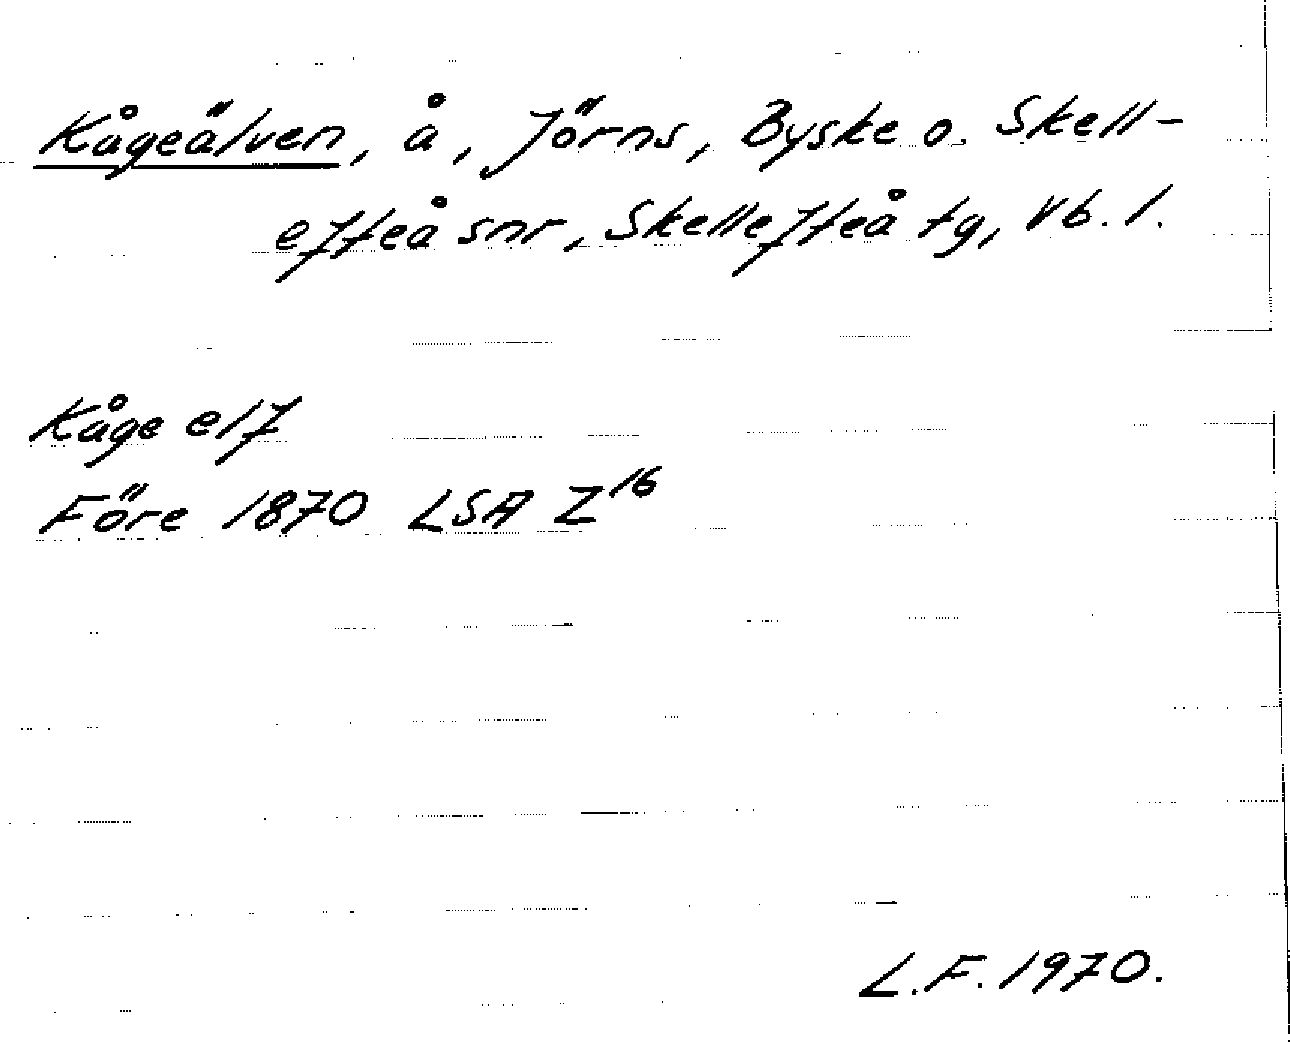 Kågeälven, å, Jörns, Byske o. Skell-
efteå snr, Skellefteå tg, Vb. l.
Kåge elf
Före 1870 LSA Z16
L.F. 1970.